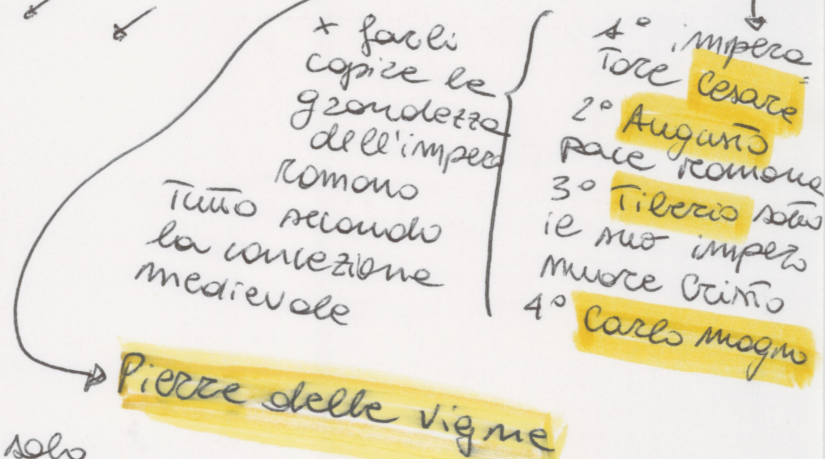 x farli
capire la
grandezza
dell'impero
romano
Tutto secondo
la concezione
medievale
1° impera=
tore Cesare
2° Augusto
pace romana
3° Tiberio sotto
il suo impero
muore Cristo
4° Carlo magno
Pierre delle vigne
solo